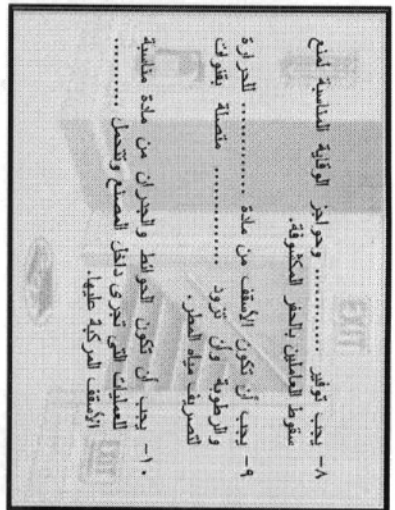 ٨- يجب توفير ............ وحواجز الوقاية المناسبة لمنع
سقوط العاملين بالحفر المكشوفة.
٩- يجب أن تكون الأسقف من مادة ............ للحرارة
والرطوبة وأن تزود ............ متصلة بقنوات
لتصريف مياه المطر.
١٠- يجب أن تكون الحوائط والجدران من مادة مناسبة
للعمليات التي تجرى داخل المصنع وتتحمل ..........
الأسقف المركبة عليها.
EXIT
EXIT